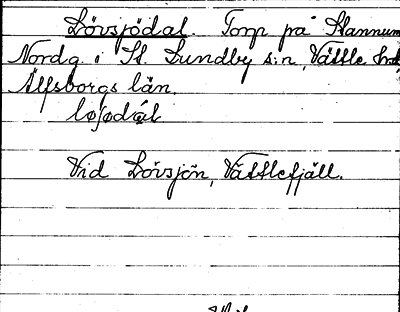 Lövsjödal. Torp på Stannum
Nordg. i St. Lundby s:n, Vättle hd,
Älfsborgs län.
løʃødal
Vid Lövsjön, Vättlefjäll.